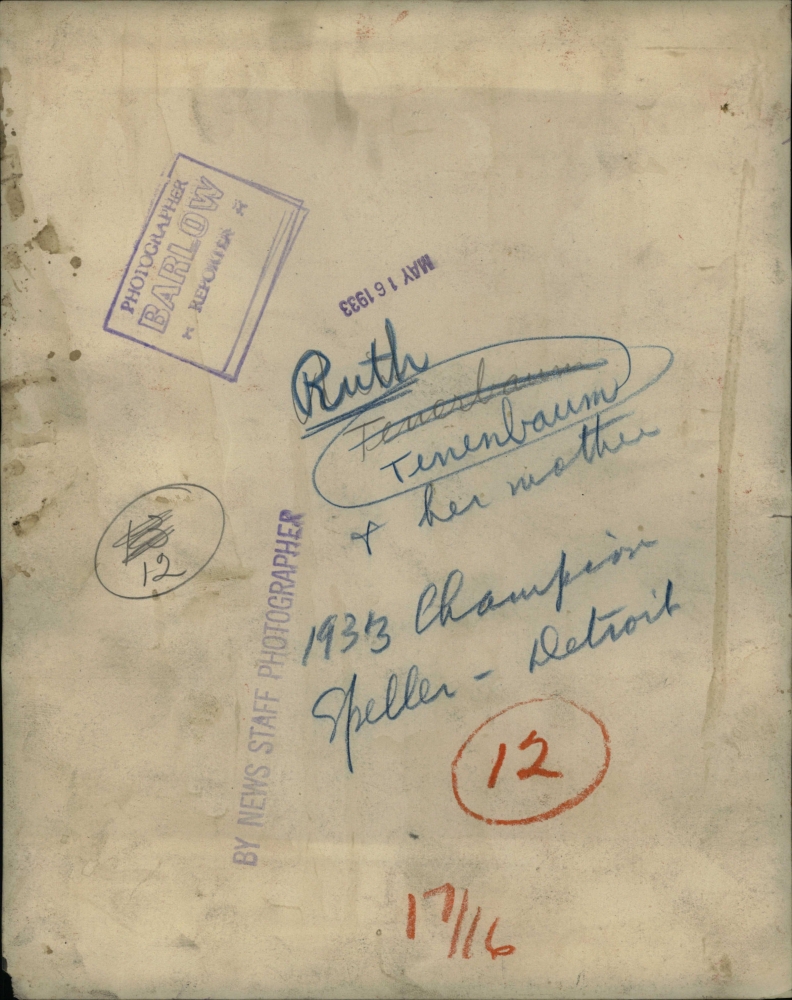 PHOTOGRAPHER
BARLOW
REPORTER
MAY 16 1933
Ruth
Tenerbaum
Tenenbaum
+ her mother
12
BY NEWS STAFF PHOTOGRAPHER
1933 Champion
Speller - Detroit
12
17/16